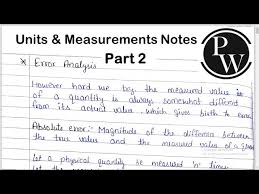 Units & Measurements Notes
Part 2
PW
* Error Analysis
However hard we be, the measured value
of a quantity is always somewhat different
from its actual value, which gives birth to
Absolute error:- Magnitude of the difference between
the true value and the measured value of a
let a physical quantity be measured 'n' times